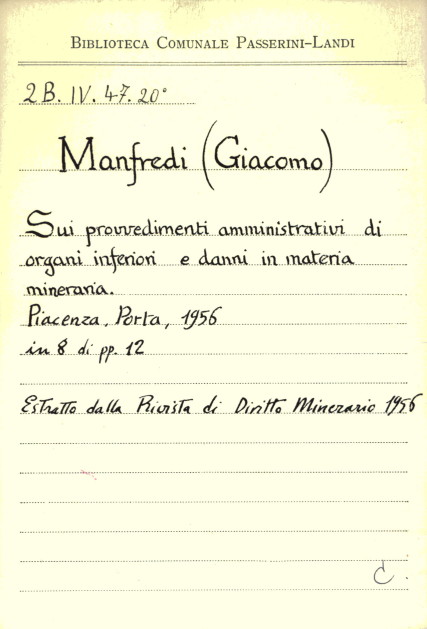 BIBLIOTECA COMUNALE PASSERINI-LANDI
2B. IV. 47. 20°
Manfredi (Giacomo)
Sui provvedimenti amministrativi di
organi inferiori e danni in materia
mineraria.
Piacenza, Porta, 1956
in 8 di pp. 12
Estratto dalla Rivista di Diritto Minerario 1956
C.